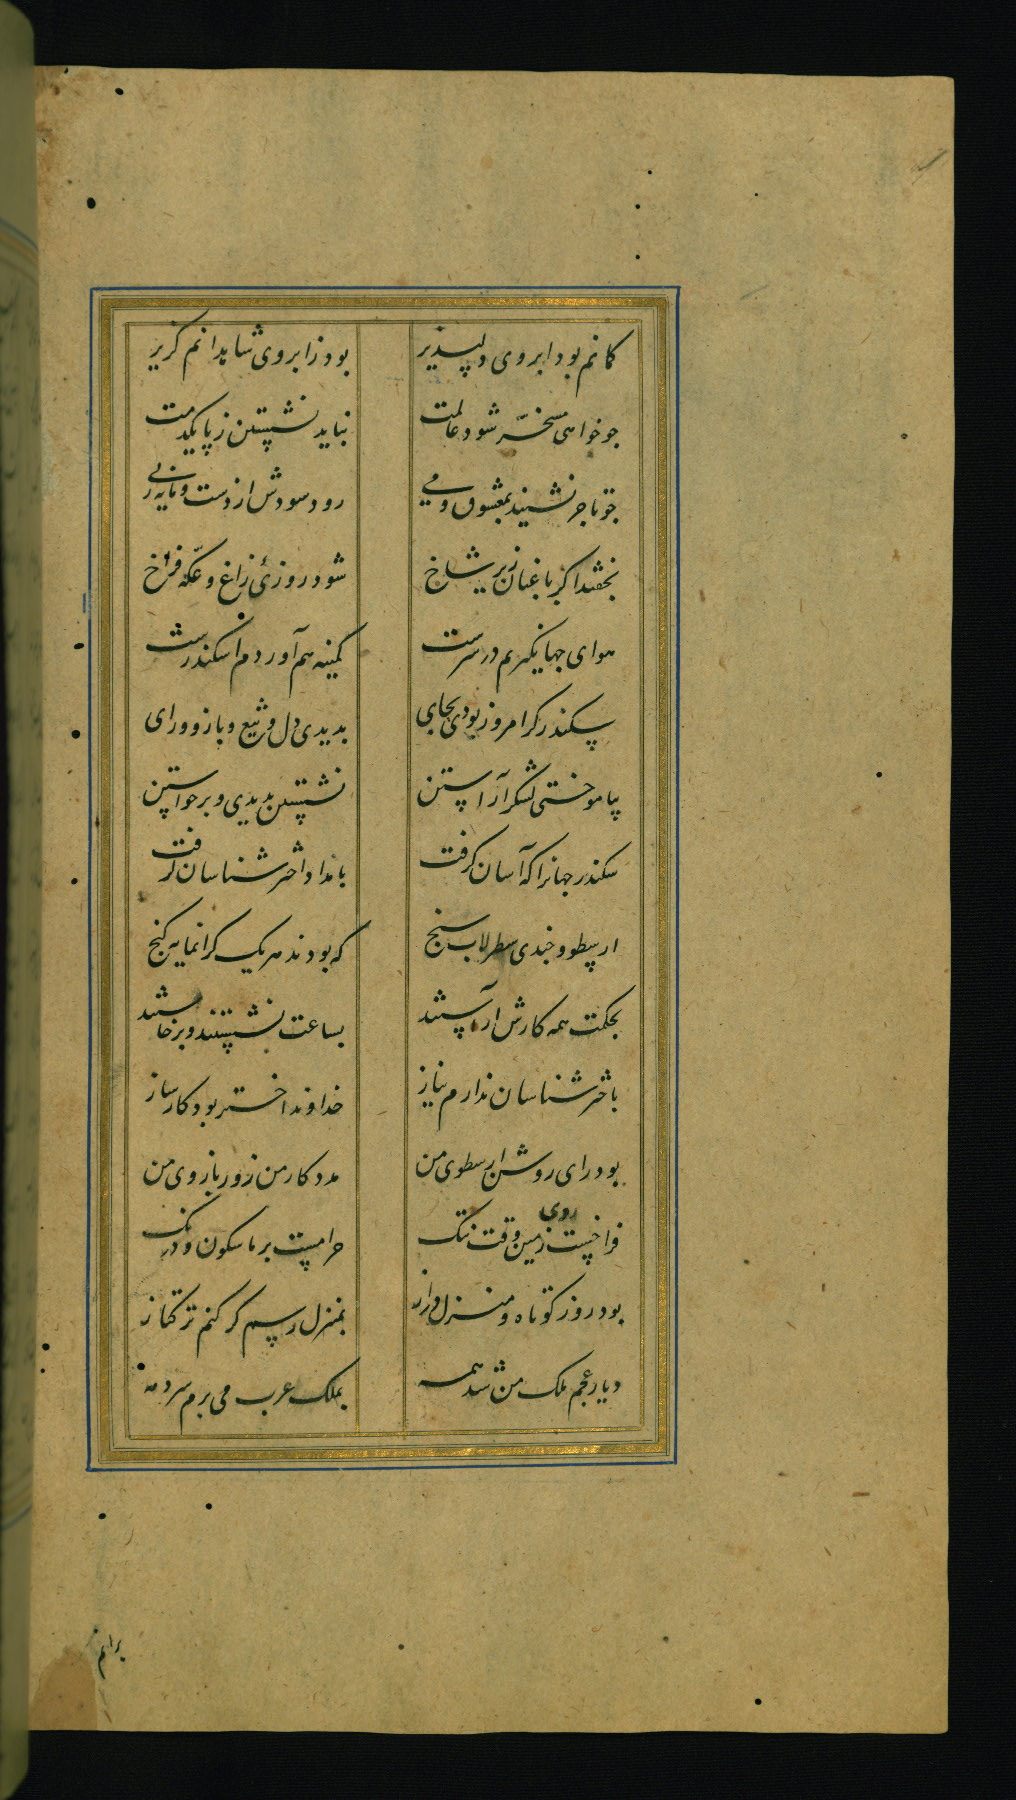 کمانم بود ابروی دلپذیر بود زابروی شاهدانم گزیر
چو خواهی مسخّر شود عالمت نباید نشستن ز پا یکدمت
چو تاجر نشیند بمعشوق و می رود سودش از دست و مایه ز پی
نخفتد اگر باغبان زیر شاخ شود روزئ زاغ و عکّه فراخ
هوای جهانگیریم در سرست کمینه هم آوردم اسکندرست
سکندر گر امروز بودی بجای بدیدی دل و تیغ و بازو و رای
بیاموختی لشکر آراستن نشستن بدیدی و برخواستن
سکندر جهانرا که آسان گرفت بامداد اختر شناسان گرفت
ارسطو و چندی سطرلاب سنج که بودند هر یک گرانمایه گنج
بحکمت همه کارش آراستند بساعت نشستند و برخاستند
باختر شناسان ندارم نیاز خداوند اختر بود کارساز
بود رای روشن ارسطوی من مددکار من زور بازوی من
فراخست روی زمین وقت تنگ حرامست بر ما سکون و درنگ
بود روز کوتاه و منزل دراز بمنزل رسم گر کنم ترکتاز
دیار عجم ملک من شد همه بملک عرب می برم سر دمه
برانم